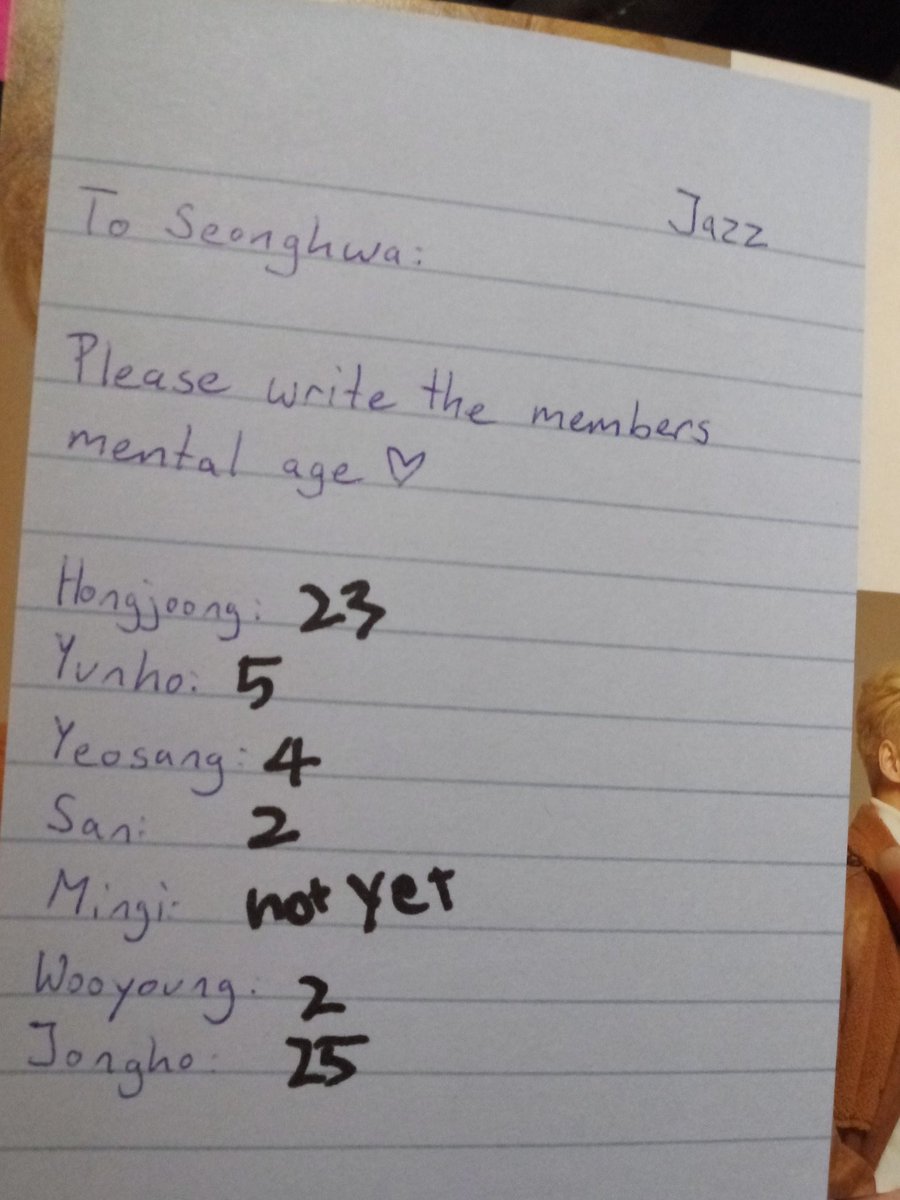 Jazz
To Seonghwa:
Please write the members
mental age ♡
Hongjoong: 23
Yunho: 5
Yeosang: 4
San: 2
Mingi: not yet
Wooyoung: 2
Jongho: 25